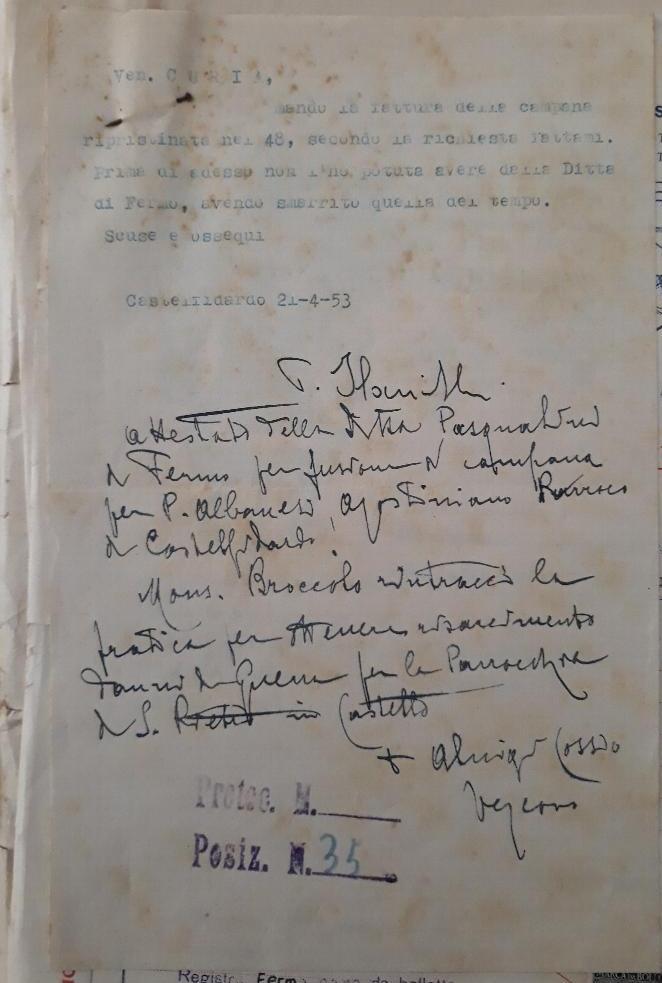 Ven. C U R I A,
mando la fattura della campana
ripristinata nel 48, secondo la richiesta fattami.
Prima di adesso non l'ho potuta avere dalla Ditta
di Fermo, avendo smarrito quella del tempo.
Scuse e ossequi
Castelfidardo 21-4-53
attestato della Ditta Pasqualini
di Fermo per fusione di campana
per P. Albanesi, agostiniano Parroco
di Castelfidardo.
Mons. Broccolo rintracci la
pratica per ottenere risarcimento
danni di Guerra per la Parrocchia
di S. in Castello
+ Aluigi Cossio
Vescovo
Protoc. N.
Posiz. N. 35
Registr. Fermo
MARCA DA BOLLO